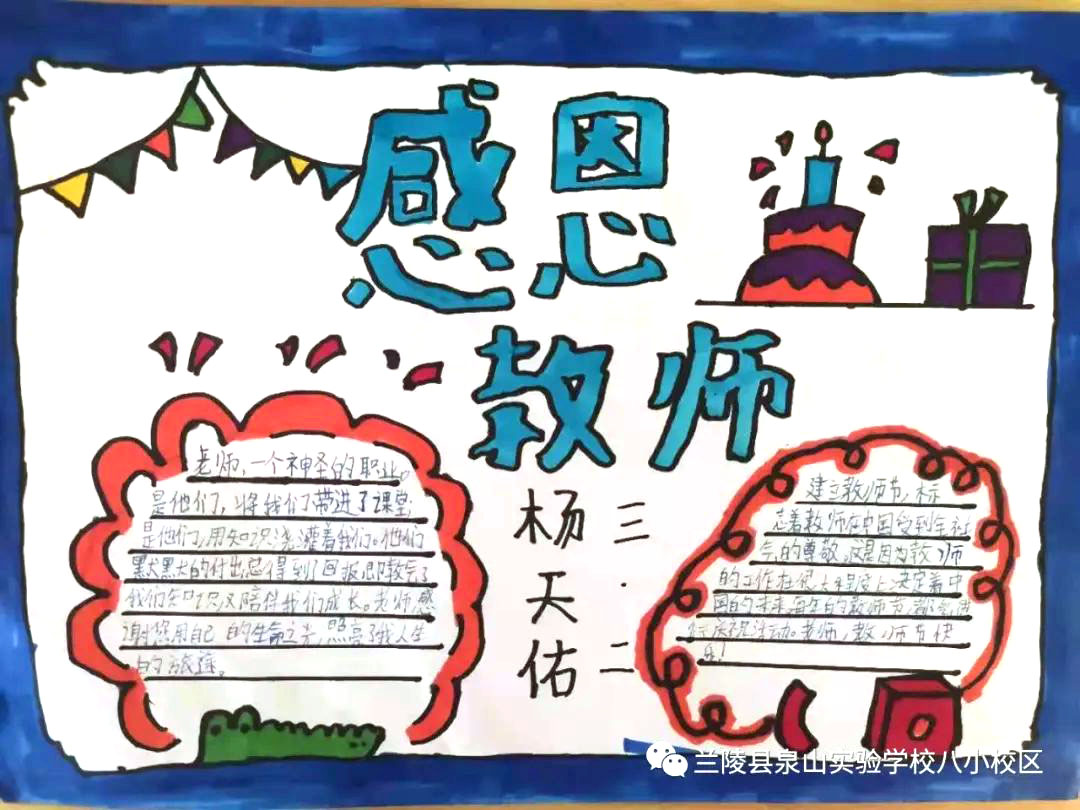 感恩
教师
老师,一个神圣的职业。
是他们,将我们带进了课堂
是他们,用知识浇灌着我们。他们
默默的付出总得到了回报,即教会了
我们知识又陪伴我们成长。老师,感
谢您用自己的生命之光,照亮了我人生
的旅途。
杨天佑
三·二
建立教师节,标
志着教师在中国受到全社
会的尊敬。这是因为教师
的工作在很大程度上决定着中
国的未来。每年的教师节都会
庆祝活动。老师,教师节快
乐!
兰陵县泉山实验学校八小校区